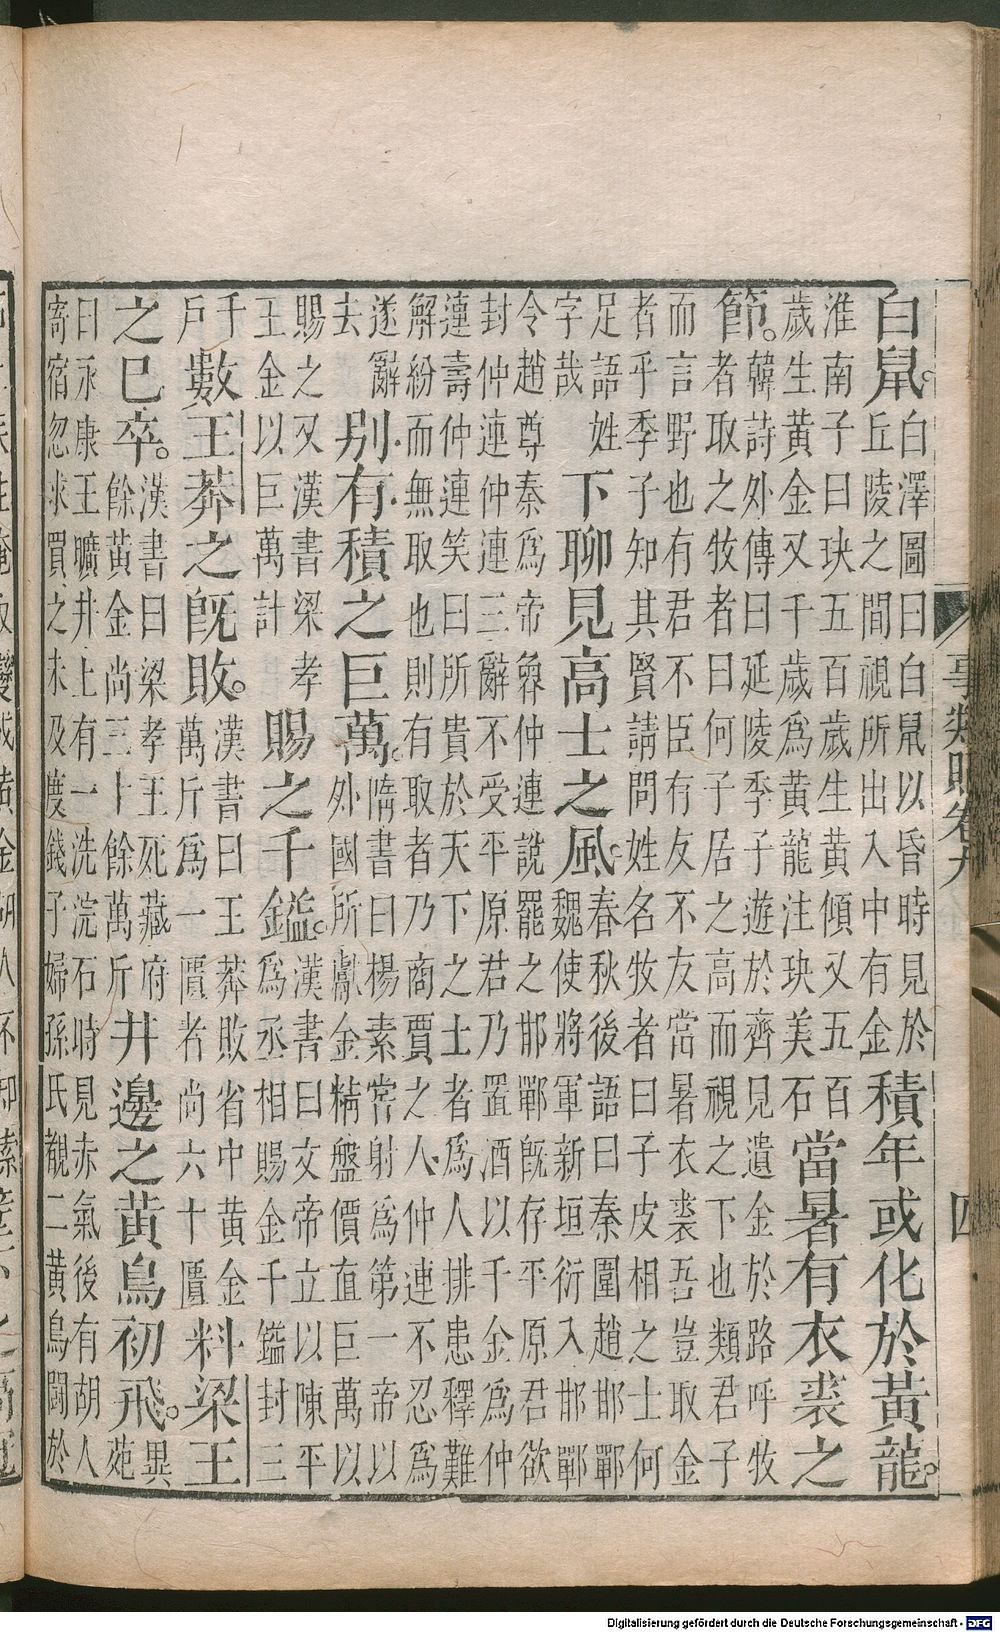 白鼠。白澤圖曰白鼠以昏時見於
丘陵之間視所出入中有金
積年或化於黃龍。
淮南子曰玦五百歲生黃傾又五百
歲生黃金又千歲為黃龍注玦美石
當暑有衣裘之
節。韓詩外傳曰延陵季子遊於齊見遺金於路呼牧
者取之牧者曰何子居之高而視之下也類君子
而言野也有君不臣有友不友當暑衣裘吾豈取金
者乎季子知其賢請問姓名牧者曰子皮相之士何
足語姓
字哉
下聊見高士之風。春秋後語曰秦圍趙邯鄲
魏使將軍新垣衍入邯鄲
令趙尊秦為帝魯仲連說罷之邯鄲旣存平原君欲
封仲連仲連三辭不受平原君乃置酒以千金為仲
連壽仲連笑曰所貴於天下之士者為人排患釋難
解紛而無取也則有取者乃商賈之人仲連不忍為
遂辭
去
別有積之巨萬。隋書曰楊素常射為第一帝以
外國所獻金精盤價直巨萬以
賜之又漢書梁孝
王金以巨萬計
賜之千鎰。漢書曰文帝立以陳平
為丞相賜金千鎰封三
千
戶
數王莽之旣敗。漢書曰王莽敗省中黃金
萬斤為一匱者尚六十匱
料梁王
之巳卒。漢書曰梁孝王死藏府
餘黃金尚三十餘萬斤
井邊之黃鳥初飛。異
苑
曰永康王曠井上有一洗浣石時見赤氣後有胡人
寄宿忽求買之未及度錢子婦孫氏覩二黃鳥鬭於
事類賦卷九
四
Digitalisierung gefördert durch die Deutsche Forschungsgemeinschaft - DFG